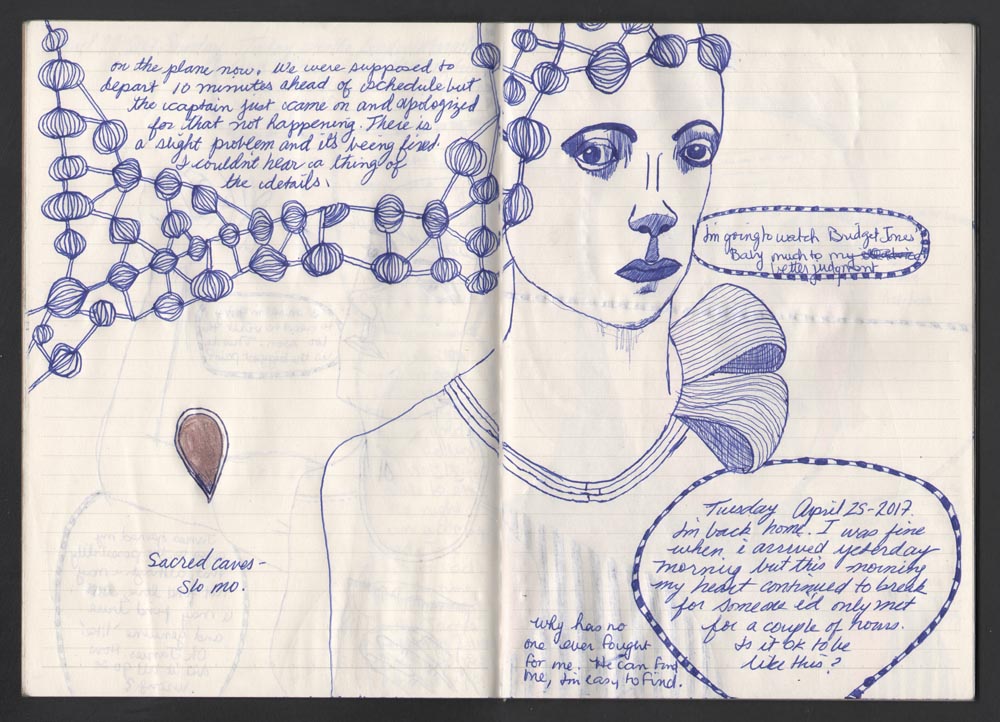 on the plane now. We were supposed to
depart 10 minutes ahead of schedule but
the captain just came on and apologized
for that not happening. There is
a slight problem and it's being fixed.
I couldn't hear a thing of
the details.
Sacred caves-
Slo mo.
I'm going to watch Bridget Jones'
Baby much to my
better judgment
Tuesday April 25-2017.
I'm back home. I was fine
when i arrived yesterday
morning but this morning
my heart continued to break
for someone i'd only met
for a couple of hours.
Is it ok to be
like this?
Why has no
one ever fought
for me. He can find
me, I'm easy to find.